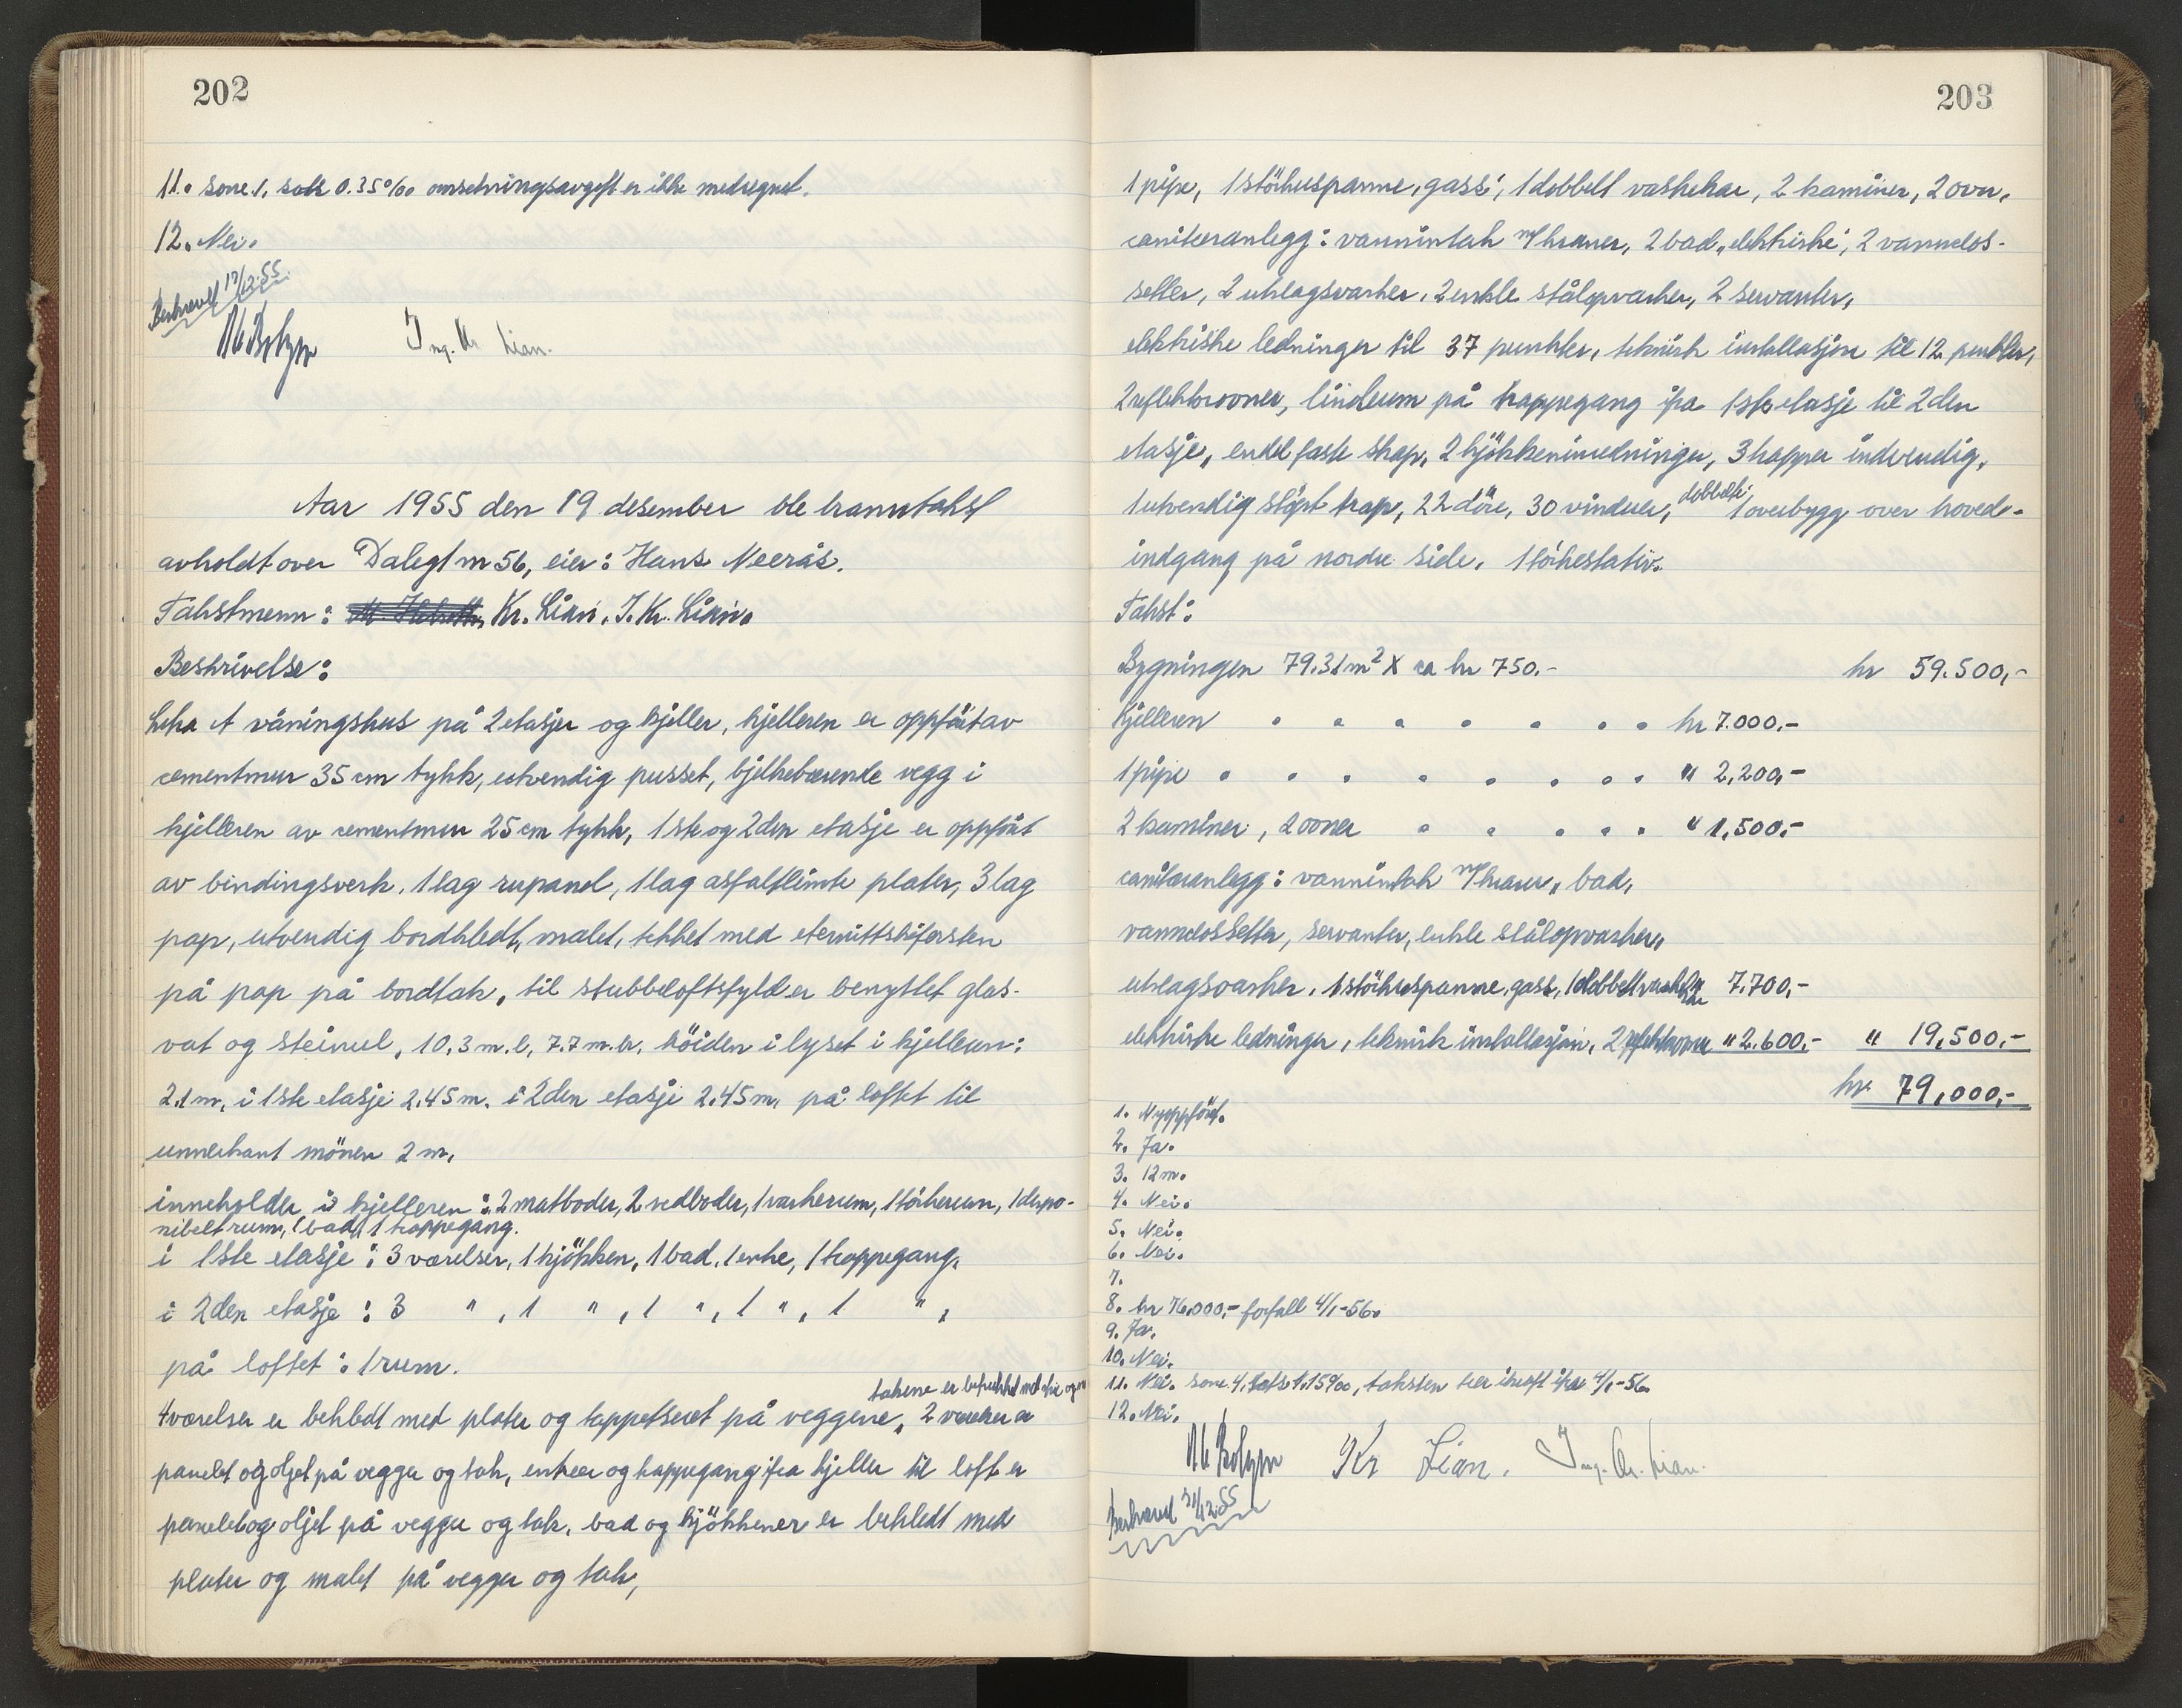 202
11. sone 1, sats 0.35‰ omsetningsavgift er ikke medregnet.
12. Nei.
Beskrevet 19/12.55.
Ing. Kr Lian.
Aar 1955 den 19 desember ble branntakst
avholdt over Dalegt nr 56, eier: Hans Neerås.
Takstmenn: Kr. Lian, I. Kr. Lian.
Beskrivelse:
Litra A våningshus på 2 etasjer og kjeller, kjelleren er oppført av
cementmur 35 cm tykk, utvendig pusset, bjelkebærende vegg i
kjelleren av cementmur 25 cm tykk, 1ste og 2den etasje er oppført
av bindingsverk, 1 lag rupanel, 1 lag asfaltlimte plater, 3 lag
pap, utvendig bordkledt, malet, tekket med eternittskifersten
på pap på bordtak, til stubbeloftsfyld er benyttet glas-
vat og steinul, 10.3 m. l, 7.7 m. br, höiden i lyset i kjelleren:
2.1 m, i 1ste etasje 2.45 m. i 2den etasje 2.45 m, på loftet til
unnerkant mönen 2 m.
inneholder i kjelleren: 2 matboder, 2 vedboder, 1 vaskerum, 1 törkerum, 1 dispo-
nibelt rum, 1 bad, 1 trappegang.
i 1ste etasje: 3 værelser, 1 kjökken, 1 bad, 1 entre, 1 trappegang.
i 2den etasje: 3 " , 1 " , 1 " , 1 " , 1 " ,
på loftet: 1 rum.
takene er
4 værelser er bekledt med plater og tappetseret på veggene, 2 værelser er
panelet og oljet på vegger og tak, entreer og trappegang ifra kjeller til loft er
panelet og oljet på vegger og tak, bad og kjökkener er bekledt med
plater og malet på vegger og tak,
203
1 pipe, 1 störhuspanne, gass, 1 dobbelt vaskekar, 2 kaminer, 2 ovner,
sanitæranlegg: vanninntak m/ kraner, 2 bad, elektriske, 2 vannclos-
setter, 2 utslagsvasker, 2 enkle stålopvasker, 2 servanter,
elektriske ledninger til 37 punkter, teknisk installasjon til 12 punkter,
2 reflektorovner, linoleum på trappegang ifra 1ste etasje til 2den
etasje, endel faste skap, 2 kjökkeninredninger, 3 trapper indvendig,
1 utvendig stöpt trap, 22 döre, 30 vinduer, dobbelte, 1 overbygg over hoved-
indgang på nordre side, 1 törkestativ.
Takst:
Bygningen 79.31 m² x ca kr 750.- kr 59.500,-
Kjelleren kr 7.000,-
1 pipe " 2,200,-
2 kaminer, 2 ovner " 1,500,-
sanitæranlegg: vanninntak m/ kraner, bad,
vannclossetter, servanter, enkle stålopvasker,
utslagsvasker, 1 störhuspanne, gass, 1 dobbelt vaskekar 7.700,-
elektriske ledninger, teknisk installasjon, 2 reflektorovner " 2.600,- " 19,500,-
kr. 79,000,-
1. Nyoppfört.
2. Ja.
3. 12 m.
4. Nei.
5. Nei.
6. Nei.
7.
8. kr 76.000,- forfall 4/1-56.
9. Ja.
10. Nei.
11. Nei. sone 4, sats 1.15‰, taksten trer i kraft ifra 4/1-56.
12. Nei.
Kr Lian. Ing. Kr. Lian.
Beskrevet 31/12.55